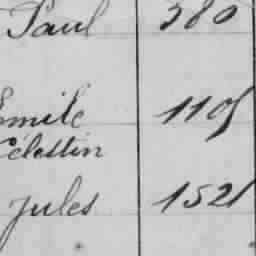 Paul 380
Emile 1105
Célestin
Jules 1521